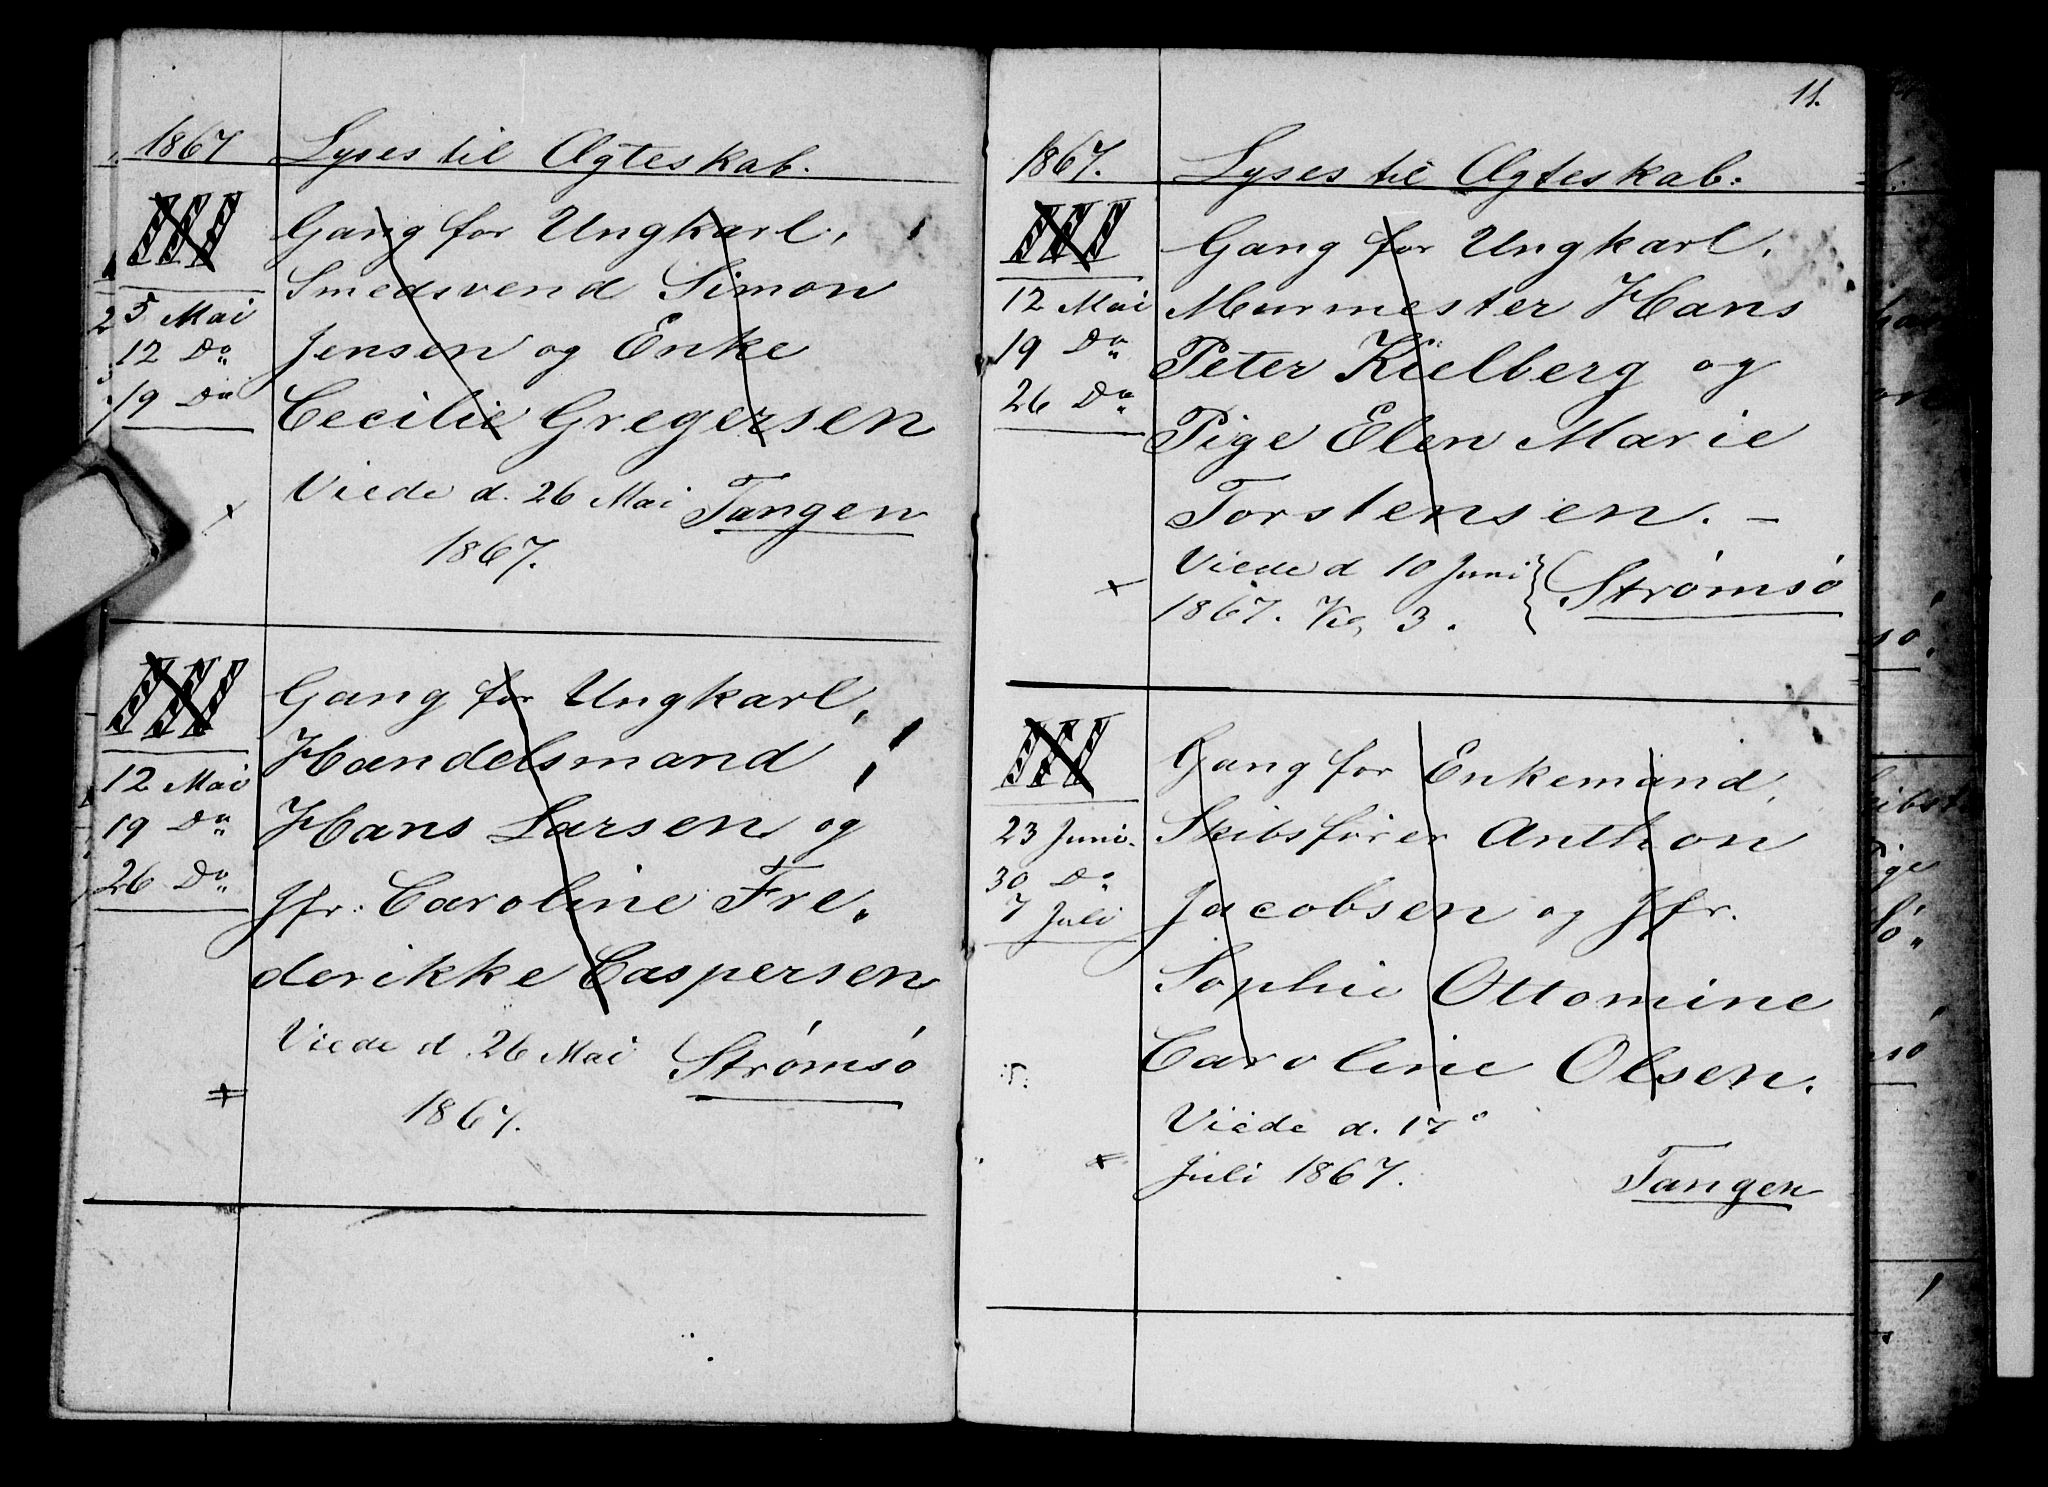 1867 Lyses til Ægteskab.
III Gang for Ungkarl,
Smedsvend Simon
5 Mai
12 Do Jensen og Enke
19 Do Cecilie Gregersen
Viede d. 26 Mai Tangen
1867.
III Gang for Ungkarl,
Handelsmand
12 Mai
19 Do Hans Larsen og
26 Do Jfr. Caroline Fre„
derikke Caspersen
Viede d. 26 Mai Strømsø
1867.
11.
1867. Lyses til Ægteskab:
III Gang for Ungkarl,
12 Mai Murmester Hans
19 Do Peter Kielberg og
26 Do Pige Elen Marie
Torstensen. –
Viede d 10 Juni Strømsø
1867. Kl, 3.
III Gang for Enkemand,
23 Juni. Skibsfører Anthon
30 Do
7 Juli Jacobsen og Jfr.
Sophie Ottomine
Caroline Olsen.
Viede d. 17
Juli 1867. Tangen